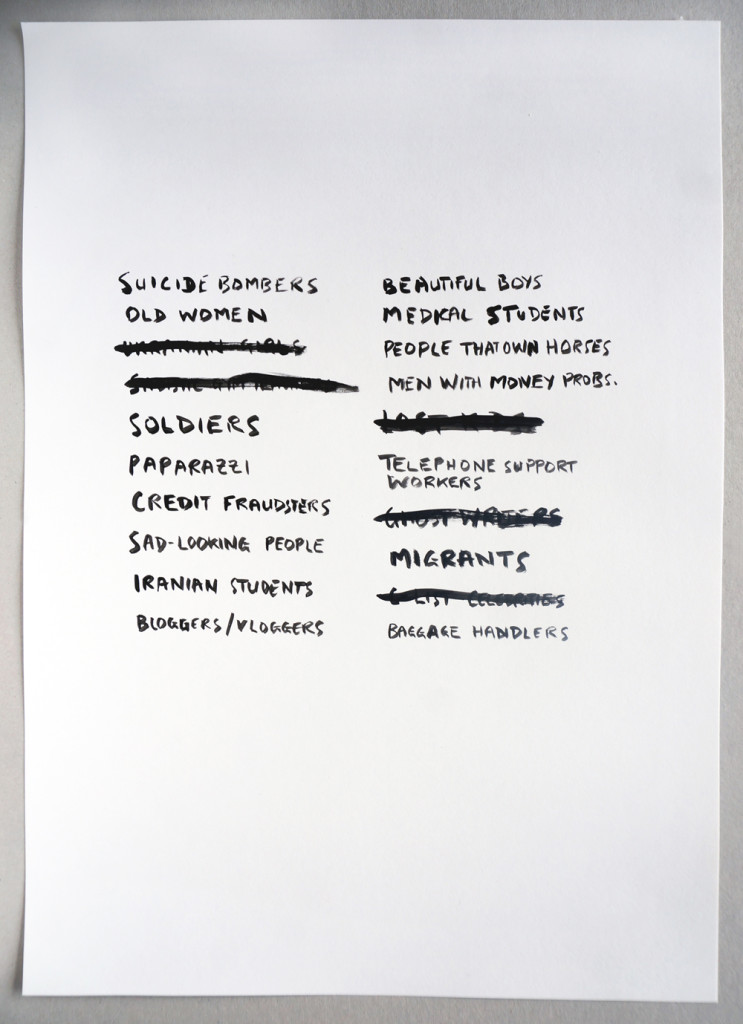 SUICIDE BOMBERS
OLD WOMEN
SOLDIERS
PAPARAZZI
CREDIT FRAUDSTERS
SAD-LOOKING PEOPLE
IRANIAN STUDENTS
BLOGGERS/VLOGGERS
BEAUTIFUL BOYS
MEDICAL STUDENTS
PEOPLE THAT OWN HORSES
MEN WITH MONEY PROBS.
TELEPHONE SUPPORT
WORKERS
GHOST WRITERS
MIGRANTS
C-LIST CELEBRITIES
BAGGAGE HANDLERS